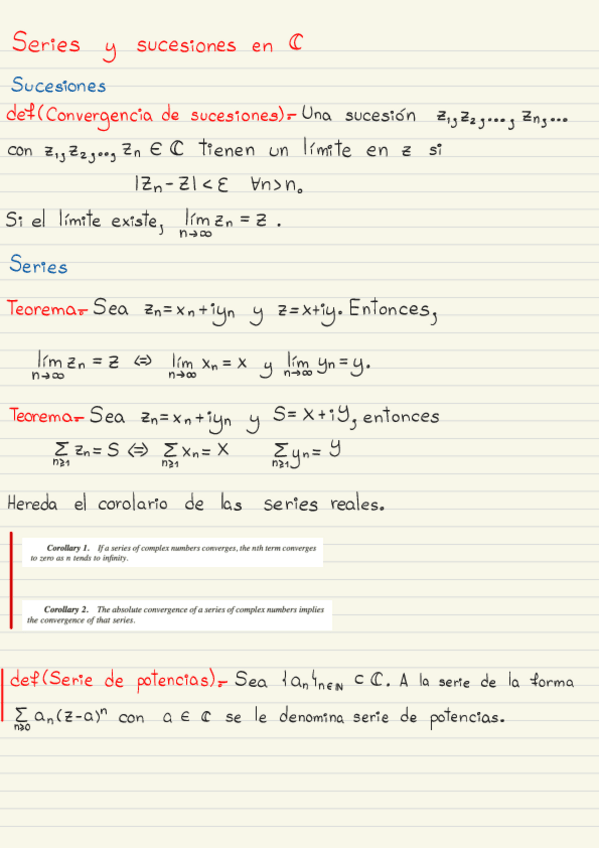 Series y sucesiones en ℂ
Sucesiones
def(Convergencia de sucesiones).- Una sucesión z₁,z₂,..., zₙ,...
con z₁,z₂,..., zₙ ∈ ℂ tienen un límite en z si
|zₙ-z|<ε ∀n>n₀
Si el límite existe, lím zₙ = z .
n→∞
Series
Teorema.- Sea zₙ=xₙ+iyₙ y z=x+iy. Entonces,
lím zₙ = z ⇔ lím xₙ = x y lím yₙ=y.
n→∞ n→∞ n→∞
Teorema.- Sea zₙ=xₙ+iyₙ y S=X+iY, entonces
∑ zₙ= S ⇔ ∑ xₙ= X ∑ yₙ= Y
n≥1 n≥1 n≥1
Hereda el corolario de las series reales.
Corollary 1. If a series of complex numbers converges, the nth term converges
to zero as n tends to infinity.
Corollary 2. The absolute convergence of a series of complex numbers implies
the convergence of that series.
def(Serie de potencias).- Sea {aₙ}n∈ℕ ⊂ ℂ. A la serie de la forma
∑ aₙ(z-a)ⁿ con a ∈ ℂ se le denomina serie de potencias.
n≥0